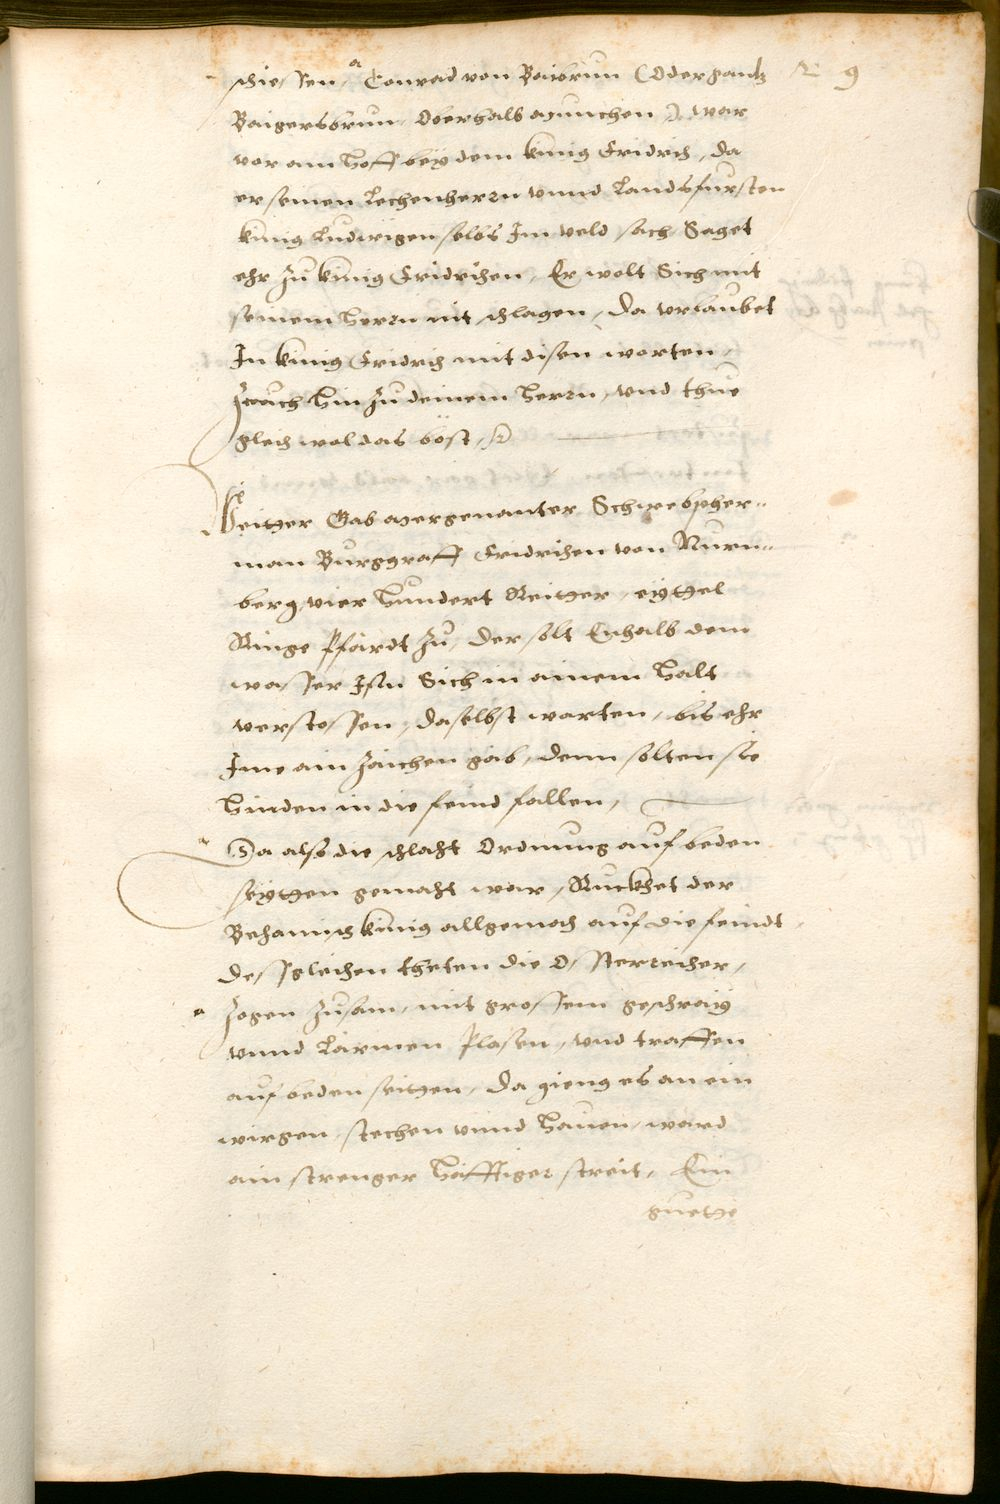 9
schiessen, Conrad von Bairbrun (Oder gantz
Baigersbrun, Oberhalb Munchen,) war
vor am Hoff bey dem kunig Fridrich, da
er seinen Lechenherrn unnd Landsfursten
kunig Ludwigen selbs Im veld sach, Saget
ehr Zu kunig Fridrichen, Er wolt Sich mit
seinem Herrn nit schlagen, Da urlaubet
In kunig Fridrich mit disen worten,
Zeuch Hin Zu deinem Herrn, und thue
gleich wol das böst,
Weitter Gab Mergenanter Schwebpher=
man Burggraff Fridrichen von Nurn=
berg, vier Hundert Reitter, eyttel
Ringe Pfärdt Zu, Der solt Enhalb dem
wasser Isn Sich in ainem Halt
verstossen, Daselbst warten, bis ehr
Ime ain Zaichen gäb, denn solten sie
Hinden in die feind fallen,
Da also die schlacht Ordnung auf beden
seytten gemacht war, Ruckhet der
Behamisch kunig allgemach auf die feindt
Dessgleichen theten die Ossterreicher,
Zogen Zusam, mit grossem geschraÿ
unnd Lärmen Plasen, und traffen
auf beden seitten, Da gieng es an ein
wirgen, stechen unnd Hauen, ward
ain strenger Häfftiger streit, Ein
guette